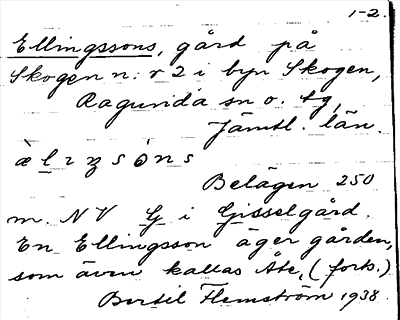 1-2.
Ellingssons, gård på
Skogen n:r 2 i byn Skogen,
Ragunda sn o. tg,
Jämtl. län.
Belägen 250
m. NV G i Gisselgård.
En Ellingsson äger gården,
som även kallas Åte, (forts.)
Bertil Flemström 1938.